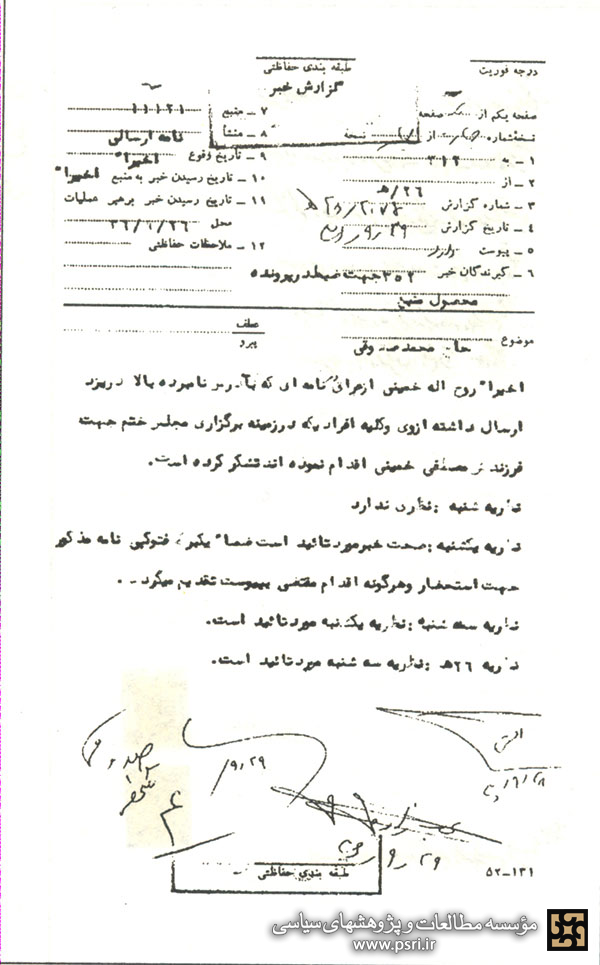 درجه فوریت
طبقه بندی حفاظتی
گزارش خبر
صفحه یکم از صفحه
نسخه شماره از نسخه
۱ ـ به ۳۱۲
۲ ـ از ۲۶/ه‍
۳ ـ شماره گزارش
۴ ـ تاریخ گزارش
۵ ـ پیوست دارد
۶ ـ گیرندگان خبر ۳۵۲ جهت ضبط در پرونده
۷ ـ منبع ۱۱۱۲۱
۸ ـ منشأ نامه ارسالی
۹ ـ تاریخ وقوع اخیرا"
۱۰ ـ تاریخ رسیدن خبر به منبع اخیرا"
۱۱ ـ تاریخ رسیدن خبر برهبر عملیات
محل ۳۶/۹/۲۶
۱۲ ـ ملاحظات حفاظتی
محصول منبع
موضوع محمد صدوقی
عطف
پیرو
اخیرا" روح اله خمینی از عراق نامه ای که بآدرس نامبرده بالا در یزد
ارسال داشته از وی و کلیه افرادیکه در زمینه برگزاری مجلس ختم جهت
فرزندش مصطفی خمینی اقدام نموده اند تشکر کرده است.
نظریه شنبه : نظری ندارد
نظریه یکشنبه : صحت خبر مورد تائید است ضمنا" یکبرگ فتوکپی نامه مذکور
جهت استحضار و هرگونه اقدام مقتضی بپیوست تقدیم میگردد.
نظریه سه شنبه : نظریه یکشنبه مورد تائید است.
نظریه ۲۶ه‍ : نظریه سه شنبه مورد تائید است.
۹/۲۹
طبقه بندی حفاظتی
۵۲-۱۳۱
مؤسسه مطالعات و پژوهشهای سیاسی
www.psri.ir